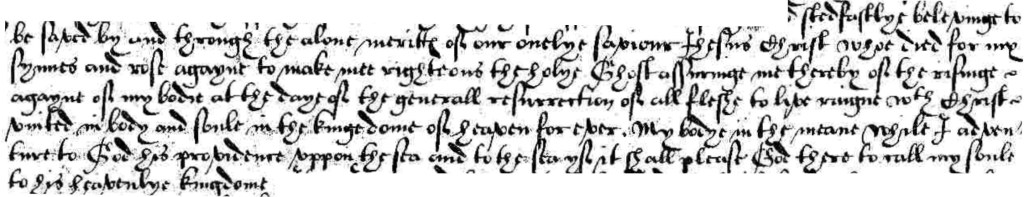 stedfastlye belevinge to
be saved by and through the alone meritte of our onelye saviour Jhesus Christ whoe died for my
synnes and rose agayne to make mee righteous the holye Ghost assuringe me thereby of the risinge
agayne of my bodie at the daye of the generall resurrection of all fleshe to live raigne wth Christ
vnited in body and soule in the kingedome of heaven for ever. My bodye in the meane while I adven
ture to God his providence vppon the sea and to the sea yf it shall please God there to call my soule
to his heavenlye kingdome